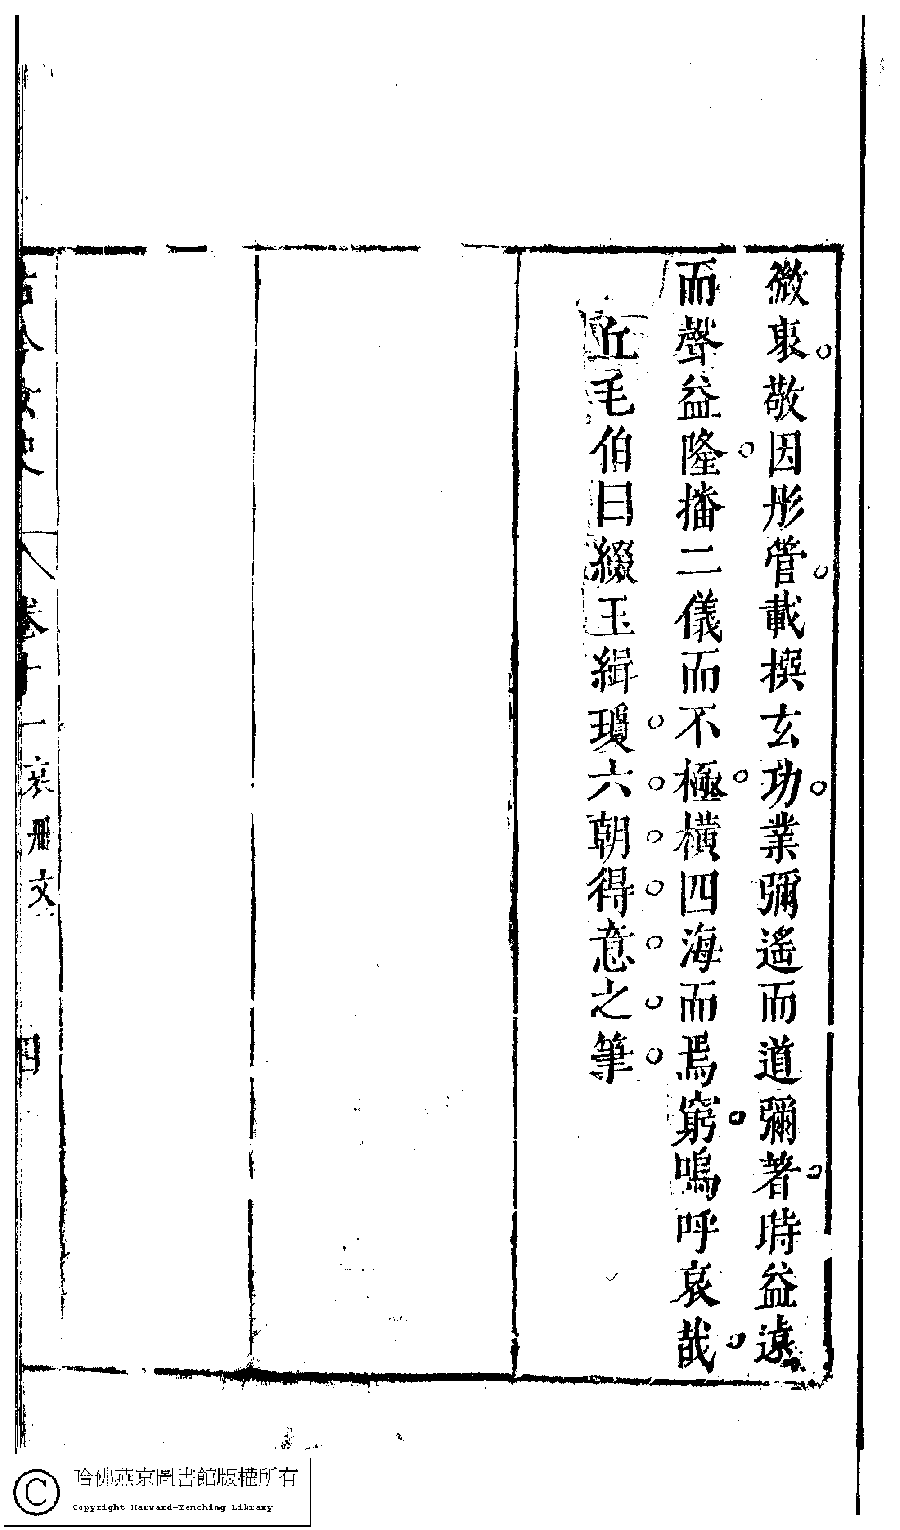 微衷敬因彤管載撰玄功業彌遙而道彌著時益遠
而聲益隆播二儀而不極橫四海而焉窮嗚呼哀哉
丘毛伯曰綴玉緝瓊六朝得意之筆
古今女史 八 卷十一 哀册文 四
哈佛燕京圖書館版權所有
Copyright Harvard-Yenching Library